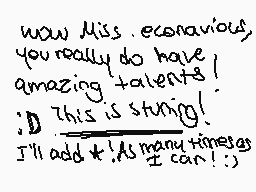 wow Miss. econavious,
you really do have
amazing talents!
:D This is stuning!
I'll add ★! As many times as
I can! :)